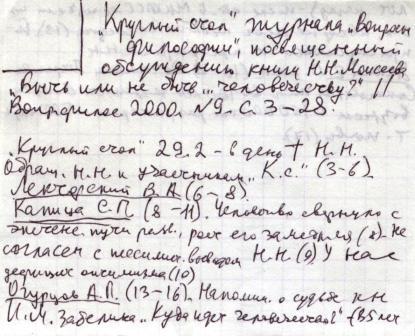 "Круглый стол" журнала "Вопросы
философии", посвященный
обсуждению книги Н.Н. Моисеева
"Быть или не быть... человечеству?" //
Вопр. филос. 2000. №9. С. 3-28.
"Круглый стол" 29.2 - в день † Н.Н.
Обращ. Н.Н. к участникам "К.с." (3-6).
Лекторский В.А. (6-8).
Капица С.П. (8-11). Человечество свернуло с
пути разв., рост его замедлился (8). Не
согласен с пессимист. выводом Н.Н. (9). У нас
оптимизма (10)
Огурцов А.П. (13-16). Напомин. о судьбе кн
И.Е. Забелина "Куда идет человечество?" (35 лет